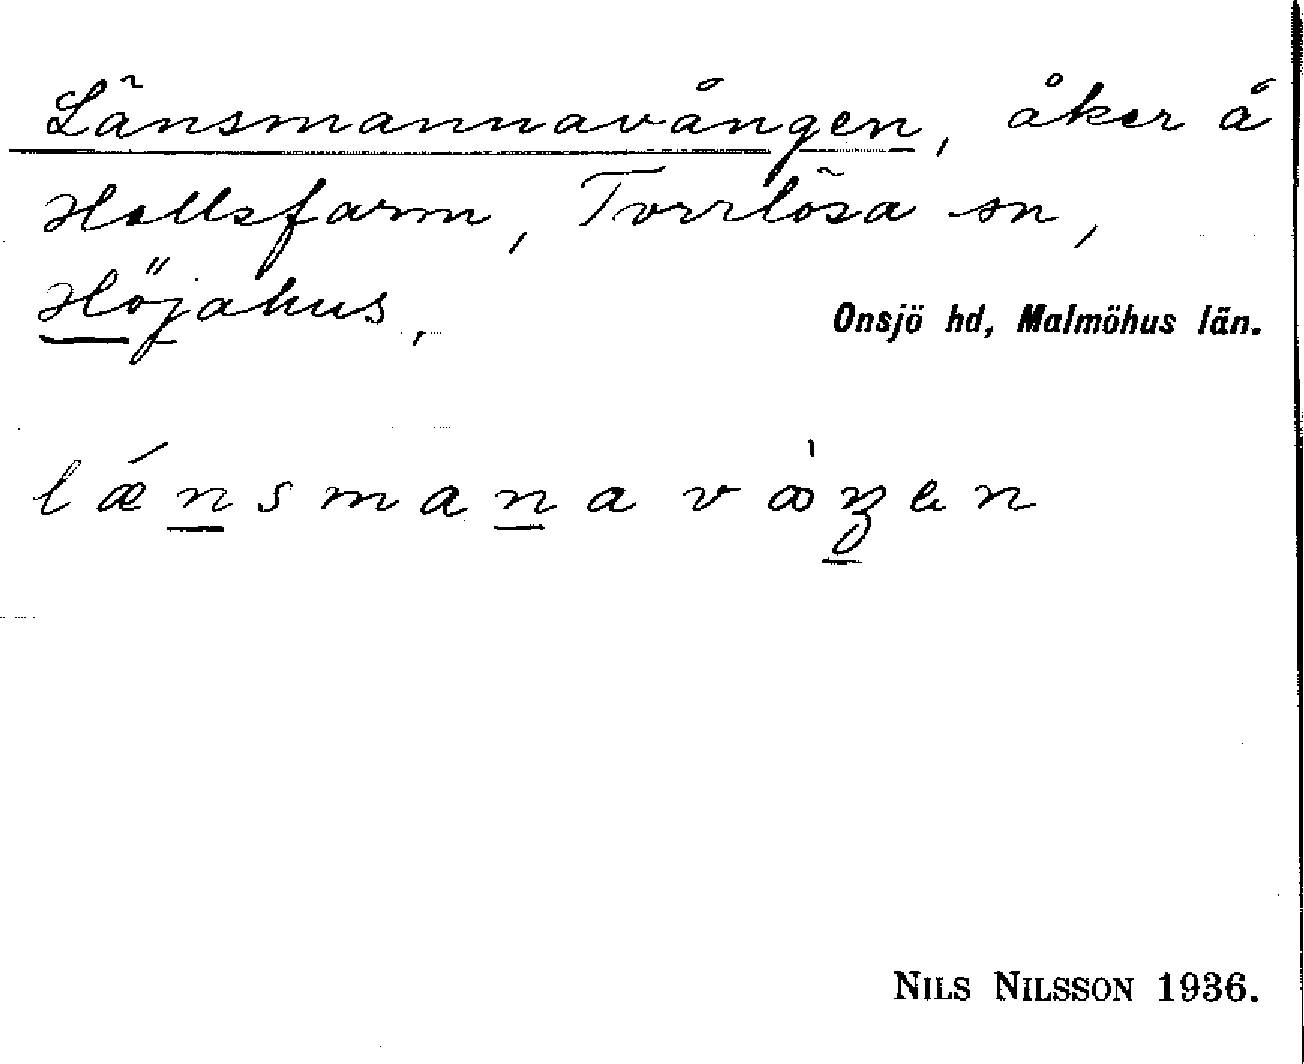 Länsmannavången, åker å
Hallsfarm, Torrlösa sn,
Höjahus, Onsjö hd, Malmöhus län.
lǽnsmana våŋen
NILS NILSSON 1936.